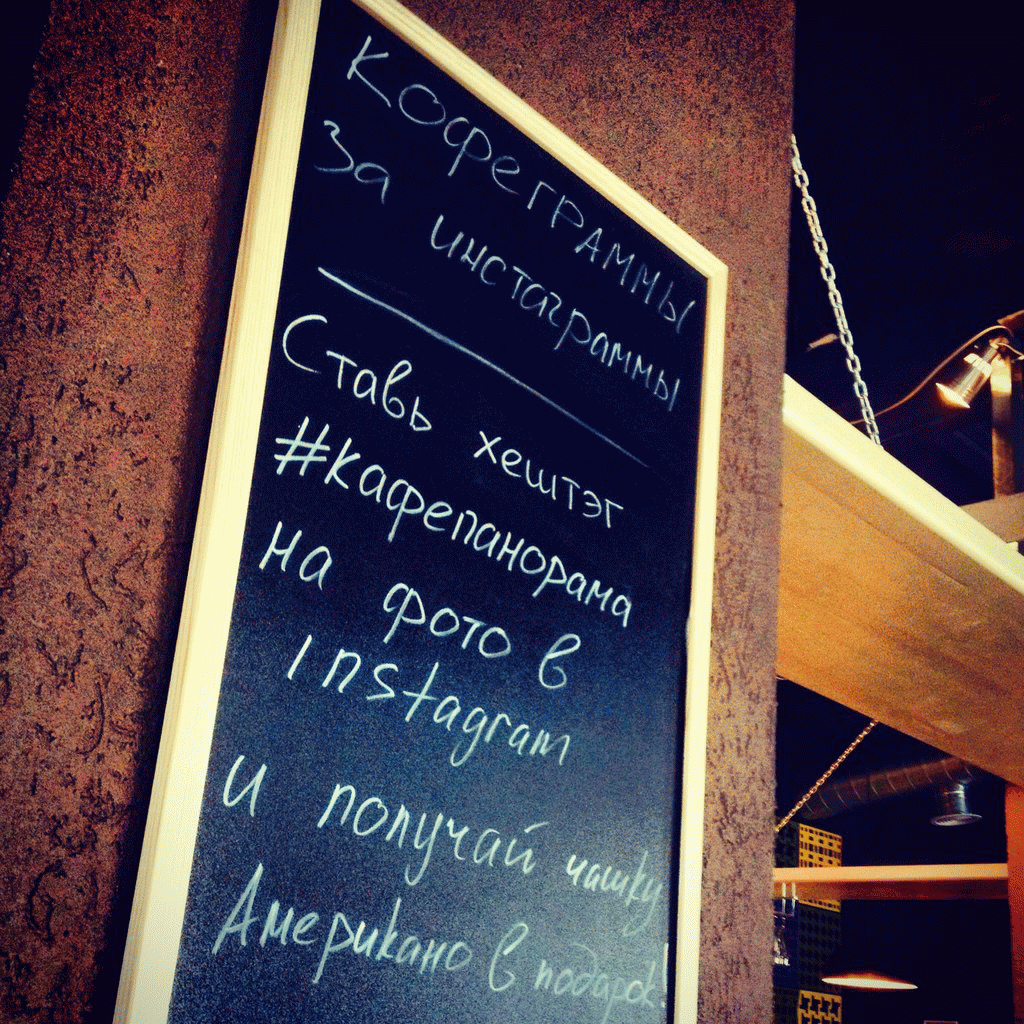 Кофеграммы
за инстаграммы
Ставь хештэг
#кафепанорама
на фото в
Instagram
и получай чашку
Американо в подарок!